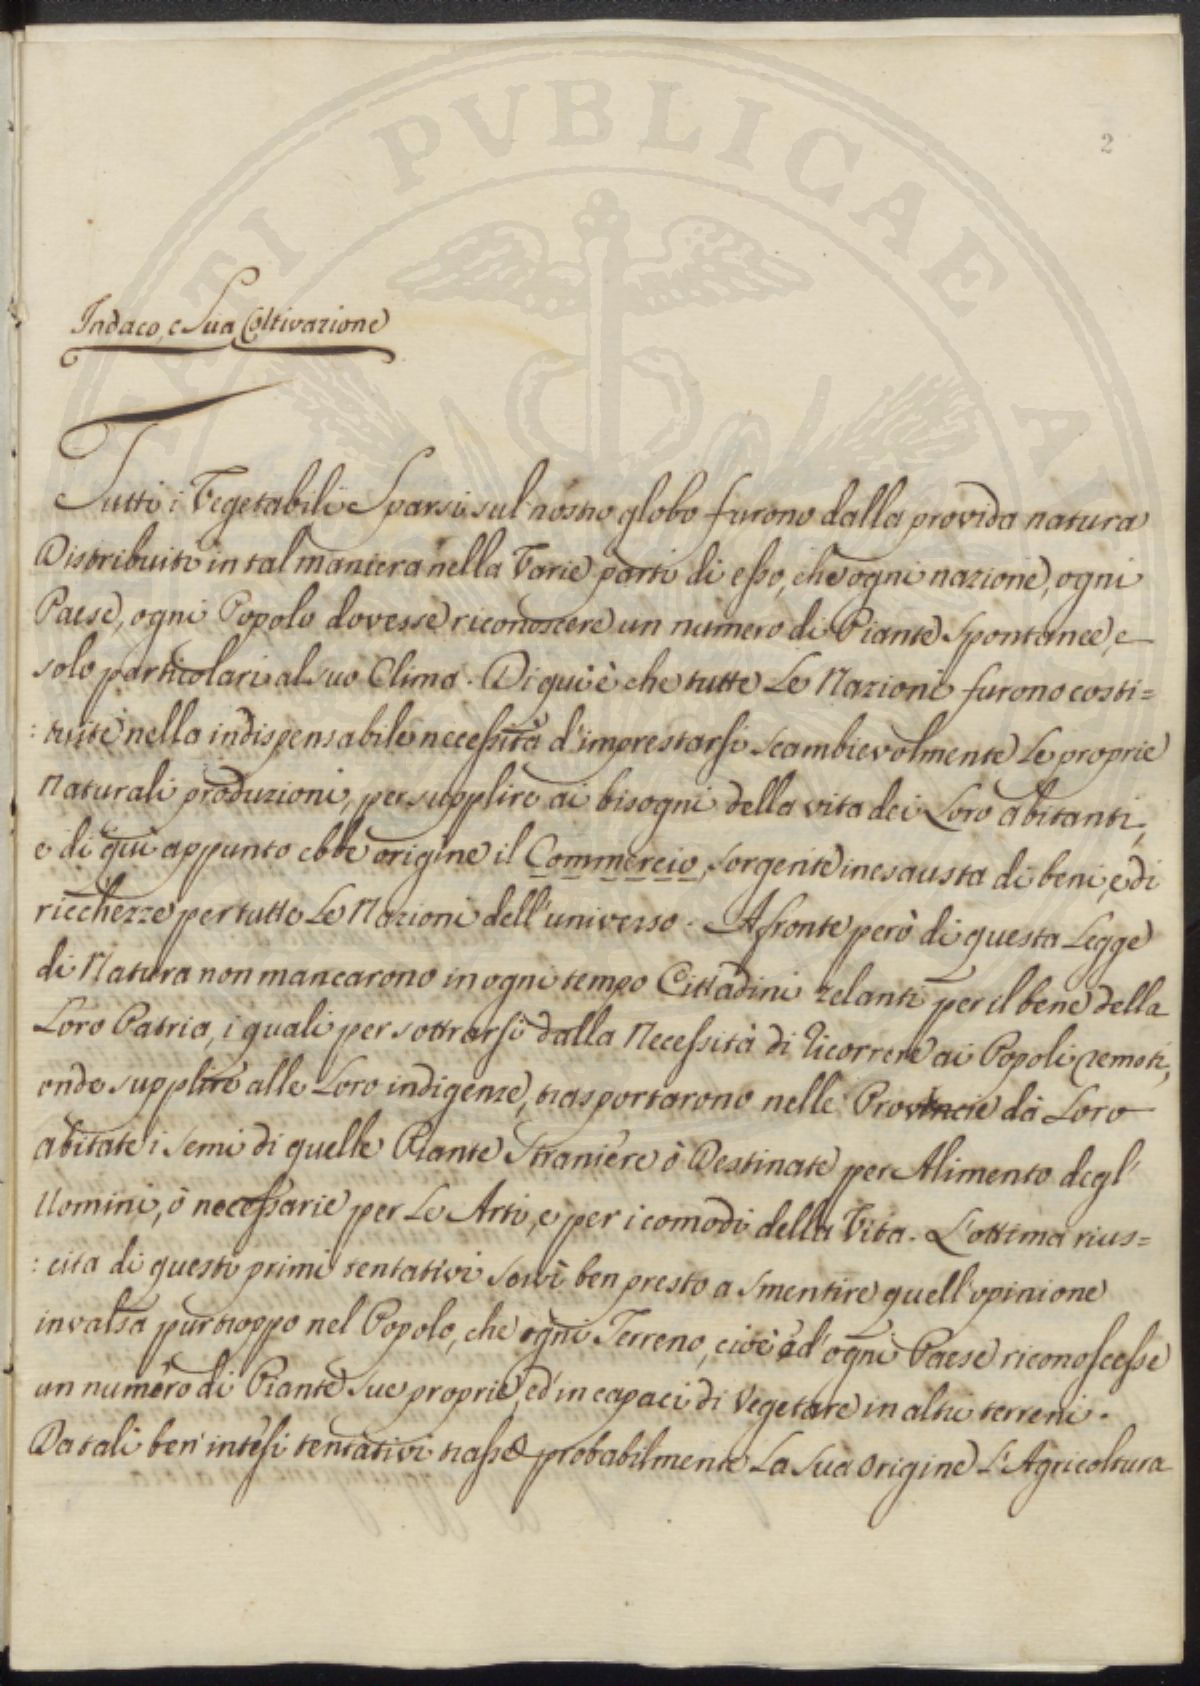 2
Indaco, e Sua Coltivazione
Tutti i Vegetabili Sparsi sul nostro globo furono dalla provida natura
Distribuiti in tal maniera nella Varie parti di esso, che ogni nazione, ogni
Paese, ogni Popolo dovesse riconoscere un numero di Piante Spontanee, e
solo particolari al suo Clima. Di qui è che tutte Le Nazioni furono costi=
:tuite nella indispensabile necessità d'imprestarsi scambievolmente Le proprie
Naturali produzioni, per supplire ai bisogni della vita dei Loro abitanti,
e di qui appunto ebbe origine il Commercio, sorgente inesausta di beni, e di
ricchezze per tutte Le Nazioni dell'universo. A fronte però di questa Legge
di Natura non mancarono in ogni tempo Cittadini zelanti per il bene della
Loro Patria, i quali per sottrarsi dalla Necessità di ricorrere ai Popoli remoti,
onde supplire alle Loro indigenze, trasportarono nelle Provincie dà Loro
abitate i semi di quelle Piante Straniere ò Destinate per Alimento degl'
Uomini, ò necessarie per Le Arti, e per i comodi della Vita. L'ottima rius=
:cita di questi primi tentativi servì ben presto a smentire quell'opinione
invalsa pur troppo nel Popolo, che ogni Terreno, cioè ad' ogni Paese riconoscesse
un numero di Piante sue proprie, ed' incapaci di Vegetare in altri terreni.
Da tali ben' intesi tentativi trasse probabilmente La Sua Origine L'Agricoltura
PUBLICAE